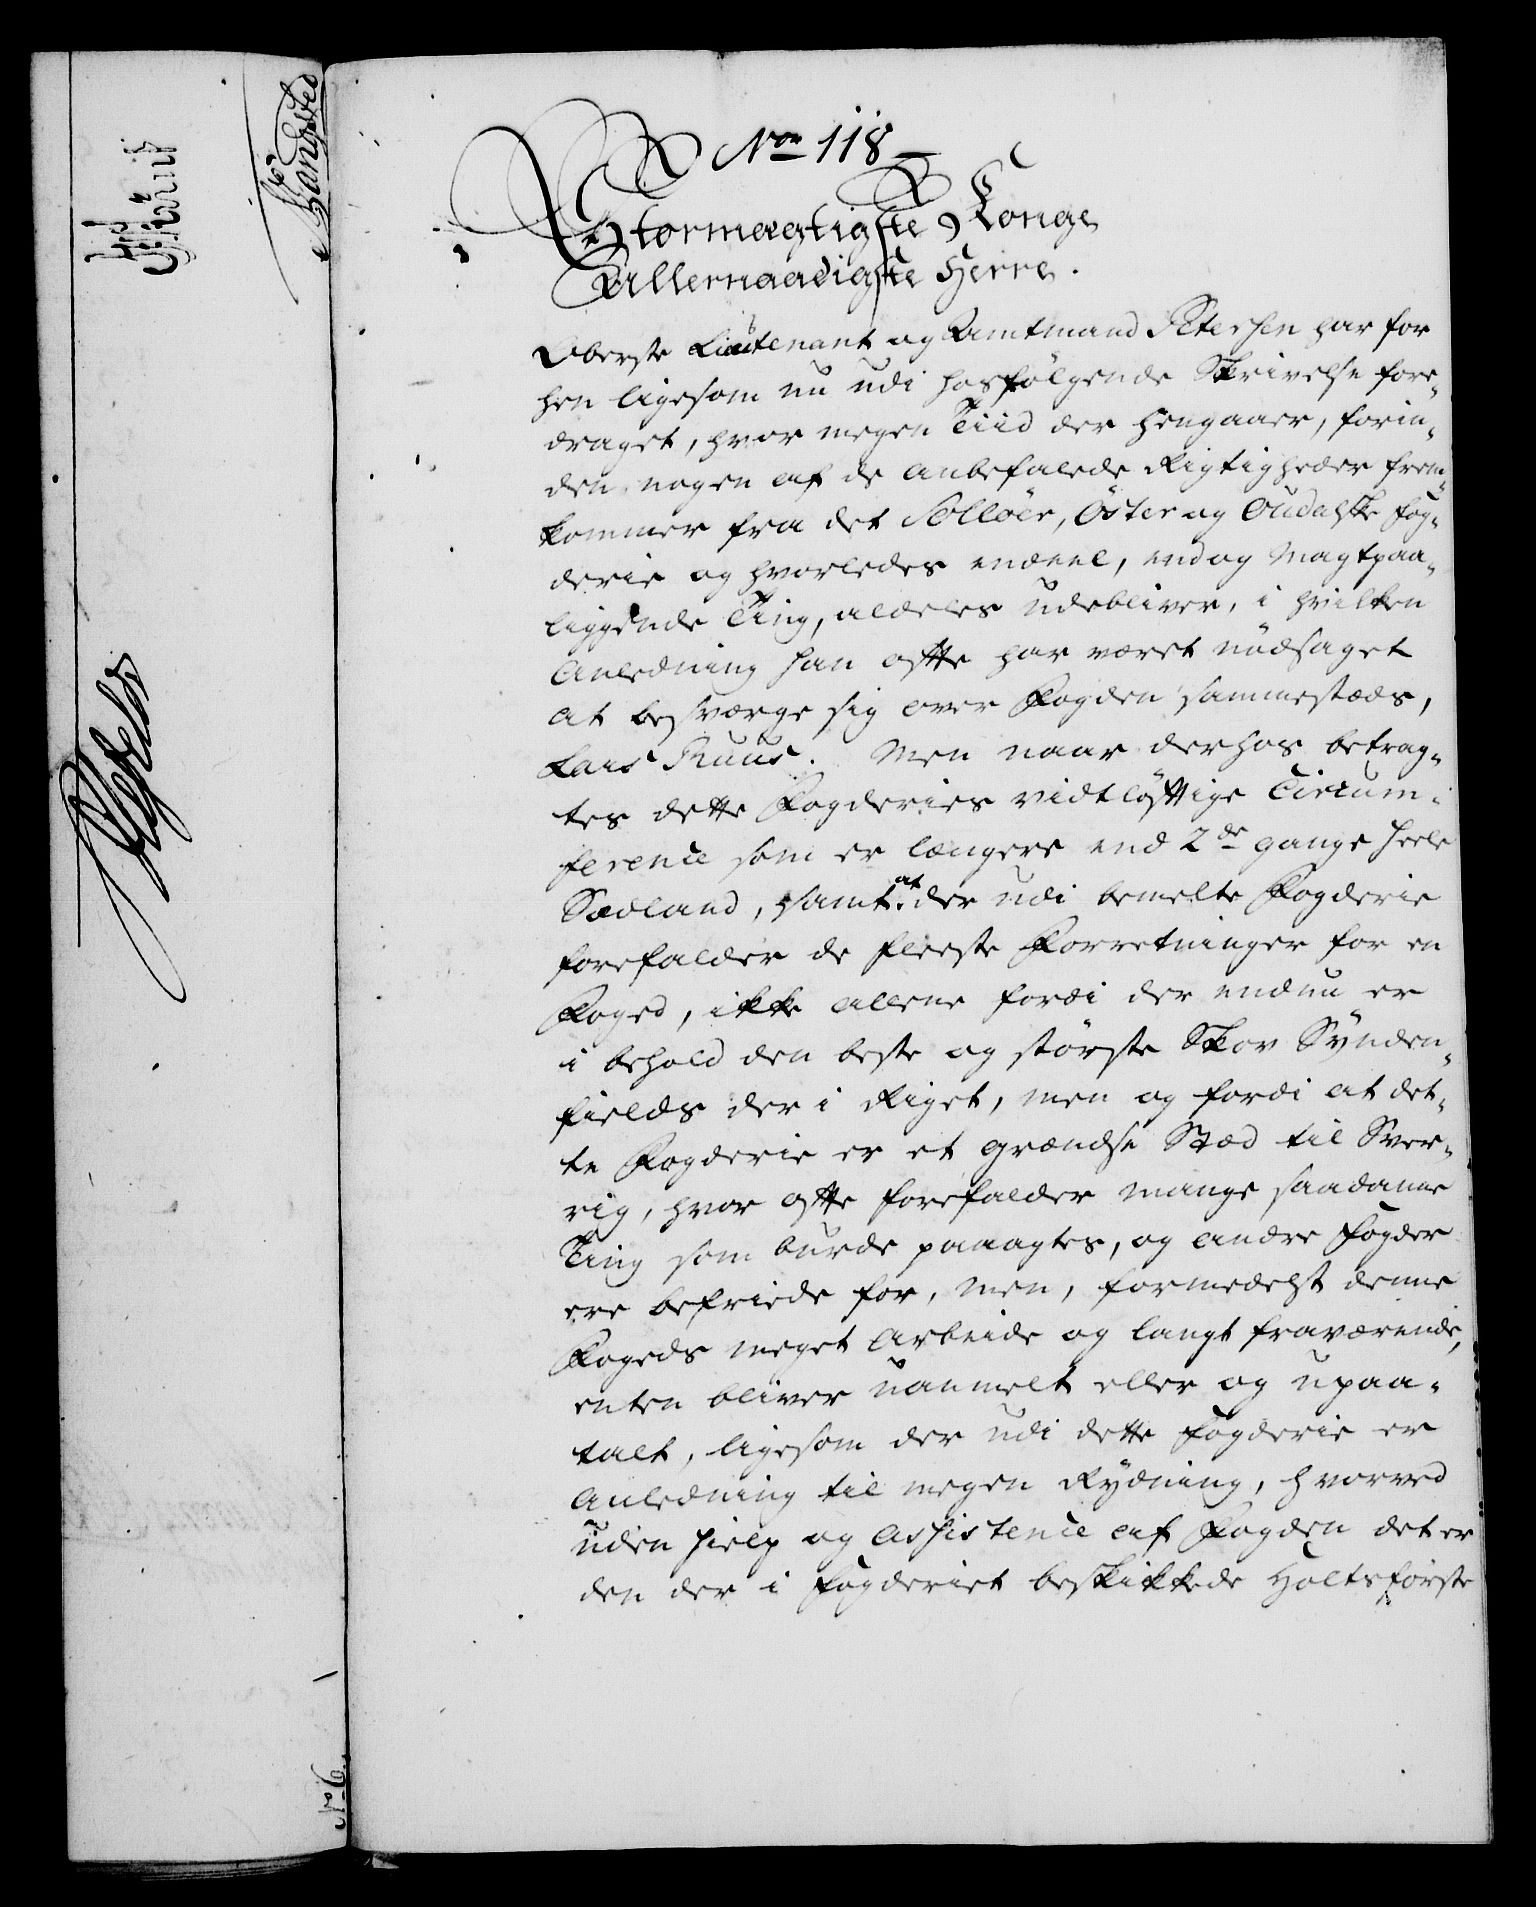 No 118
Stormægtigste Konge
Allernaadigste Herre.
Oberste Lieutenant og Amtmand Petersen har for
hen ligesom nu udi hosfølgende Skrivelse fore-
draget, hvor megen Tiid der hengaaer, forin-
den nogen af de anbefalede Rigtigheder frem-
kommer fra det Solløer, Öster og Oudalske Fog-
derie og hvorledes endeel, endog Magtpaa-
liggende Ting, aldeles udebliver, i hvilken
Anledning han ofte har været nödsaget
at besværge sig over Fogden sammestæds,
Lars Ruus. Men naar derhos betrag-
tes dette Fogderies vidtløftige Circum-
ference som er længere end 2de gange heele
Siælland, samt at der udi bemelte Fogderie
forefalder de fleeste Forretninger for en
Foged, ikke allene fordi der endnu er
i behold den beste og störste Skov Synden-
fields der i Riget, men og fordi at det-
te Fogderie er et grændse Stæd til Sver-
rig, hvor ofte forefalder mange saadanne
Ting som burde paaagtes, og andre Fogder
ere befriede for, men, formedelst denne
Fogeds meget Arbeide og langt fraværende,
enten bliver uanmelt eller og upaa-
talt, ligesom der udi dette Fogderie er
Anledning til megen Rydning, hvorved
uden hielp og Assistence af Fogden det er
den der i Fogderiet beskikkede Holtsförste
No 6.